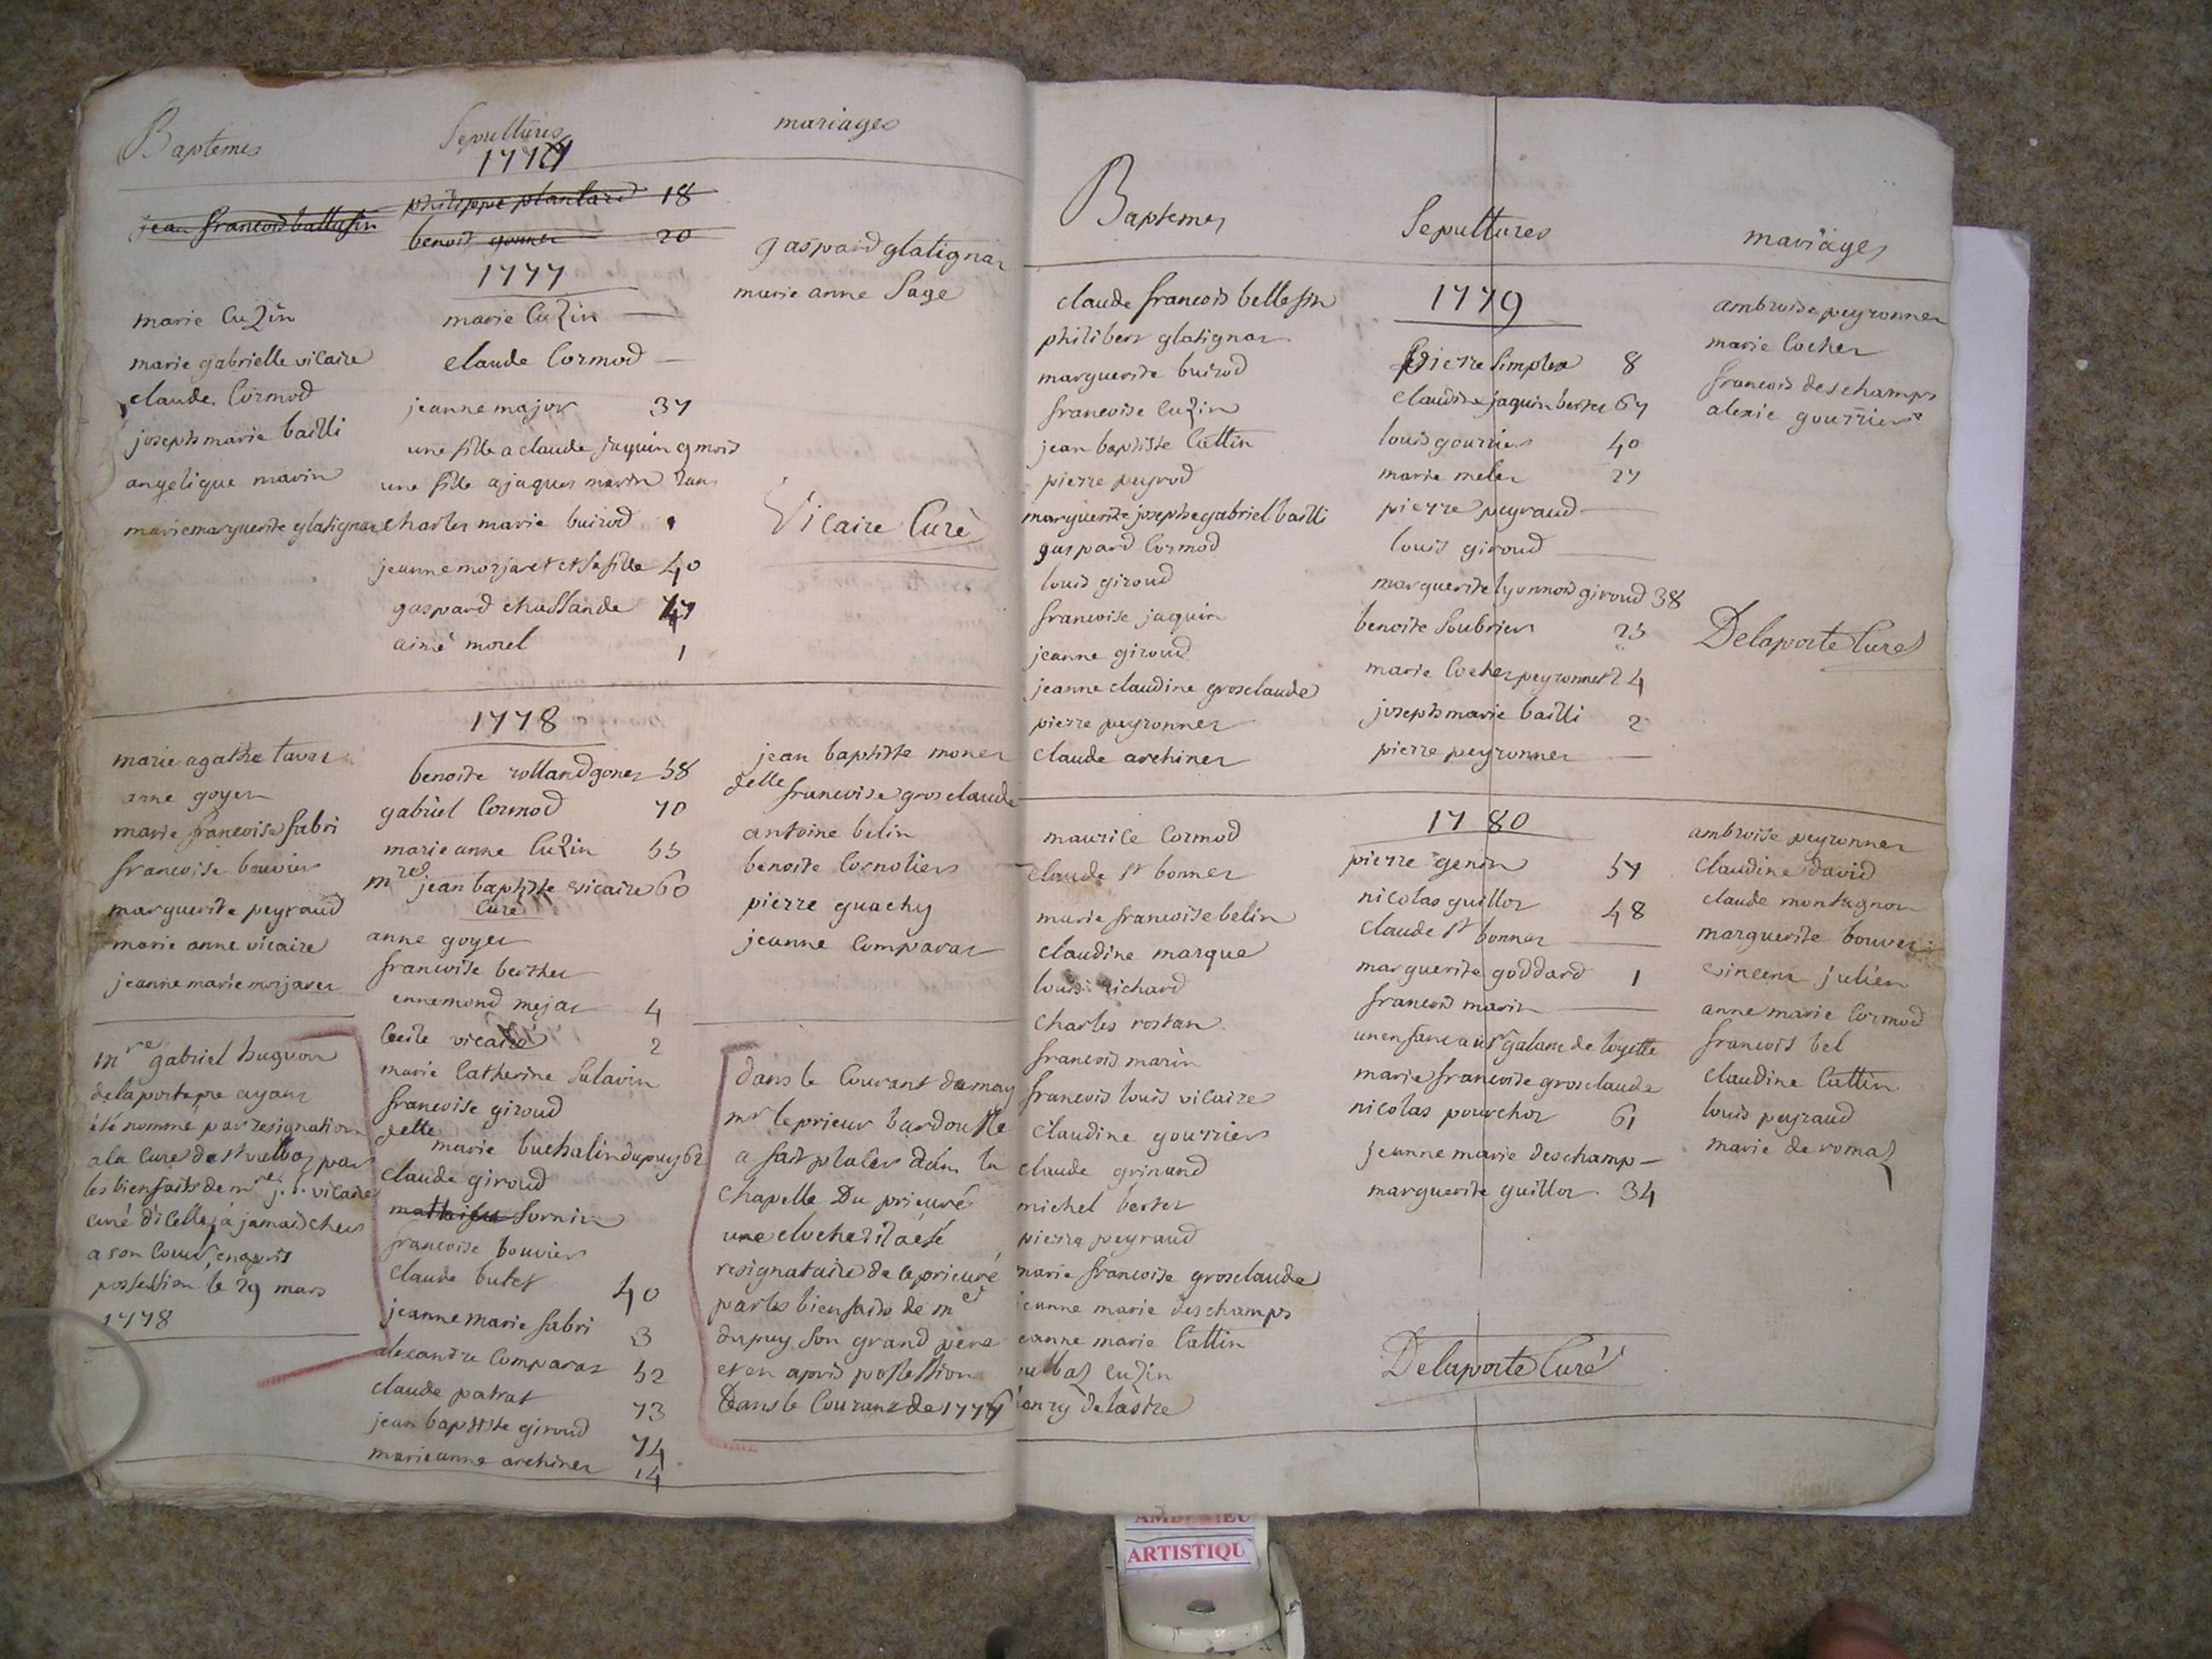 Baptemes
marie cuzin
marie gabrielle vicaire
claude cormod
joseph marie bailli
angelique marin
marie marguerite glatignar
Sepultures
philippe plantard 18
20
1777
marie cuzin
claude cormod
jeanne major 37
une fille a claude jaquin 9 mois
une fille a jaques marin
charles marie buirod
jeanne morjaret et sa fille 40
gaspard challande
aimé morel 1
mariages
gaspard glatignar
marie anne sage
Vicaire Curé
1778
marie agathe
anne goyer
marie francoise fabri
francoise bouvier
marguerite peyraud
marie anne vicaire
jeanne marie morjaret
mre gabriel huguon
delaporte ayant
été nommé par resignation
a la cure de st vulbaz par
les bienfaits de mre j. b. vicaire
curé d'icelle, à jamais cher
a son coeur, en a pris
possession le 29 mars
1778
benoite rolland goner 58
gabriel cormod 70
marie anne cuzin 55
mre jean baptiste vicaire 60
curé
anne goyer
francoise berther
ennemond mejat 4
cecile vicaire 2
marie catherine salavin
francoise giroud
delle marie buchalin dupuy 62
claude giroud
mathieu sornin
francoise bouvier
claude butet 40
jeanne marie fabri 3
alexandre comparat 52
claude patrat 73
jean baptiste giroud 74
marie anne archiner 14
jean baptiste moner
delle francoise grosclaude
antoine belin
benoite cornolier
pierre guachy
jeanne comparat
dans le courant de may
mr le prieur bardousse
a fait placer dans la
chapelle du prieuré
une cloche il a été
resignataire de ce prieuré
par les bienfaits de mr
dupuy son grand pere
et en a pris possession
dans le courant de 1776
Baptemes
claude francois bellefin
philibert glatignar
marguerite buirod
francoise cuzin
jean baptiste cattin
pierre peyrod
marguerite josephe gabriel bailli
gaspard cormod
louis giroud
francoise jaquin
jeanne giroud
jeanne claudine grosclaude
pierre peyronner
claude archiner
Sepultures
1779
pierre simplex 8
claudine jaquin berther 67
louis gourrier 40
marie meler 27
pierre peyraud
louis giroud
marguerite lyonnois giroud 38
benoite soubrier 25
marie cocher peyronner 24
joseph marie bailli 2
pierre peyronner
mariages
ambroise peyronner
marie cocher
francois deschamps
alexie gourrier
Delaporte Curé
1780
maurice cormod
claude st bonner
marie francoise belin
claudine marque
louis richard
charles rostan
francois marin
francois louis vicaire
claudine gourrier
claude grinand
michel berter
pierre peyraud
marie francoise grosclaude
jeanne marie deschamps
jeanne marie cattin
vulbaz cuzin
henry delastre
pierre genin 57
nicolas guillot 48
claude st bonner
marguerite goddard 1
francois marin
un enfant a sr galant de loyette
marie francoise grosclaude
nicolas pourchot 61
jeanne marie deschamp
marguerite guillot 34
Delaporte Curé
ambroise peyronner
claudine david
claude montagnon
marguerite bouver
vincent julien
anne marie cormod
francois bel
claudine cattin
louis peyraud
marie de romaz
ARTISTIQU